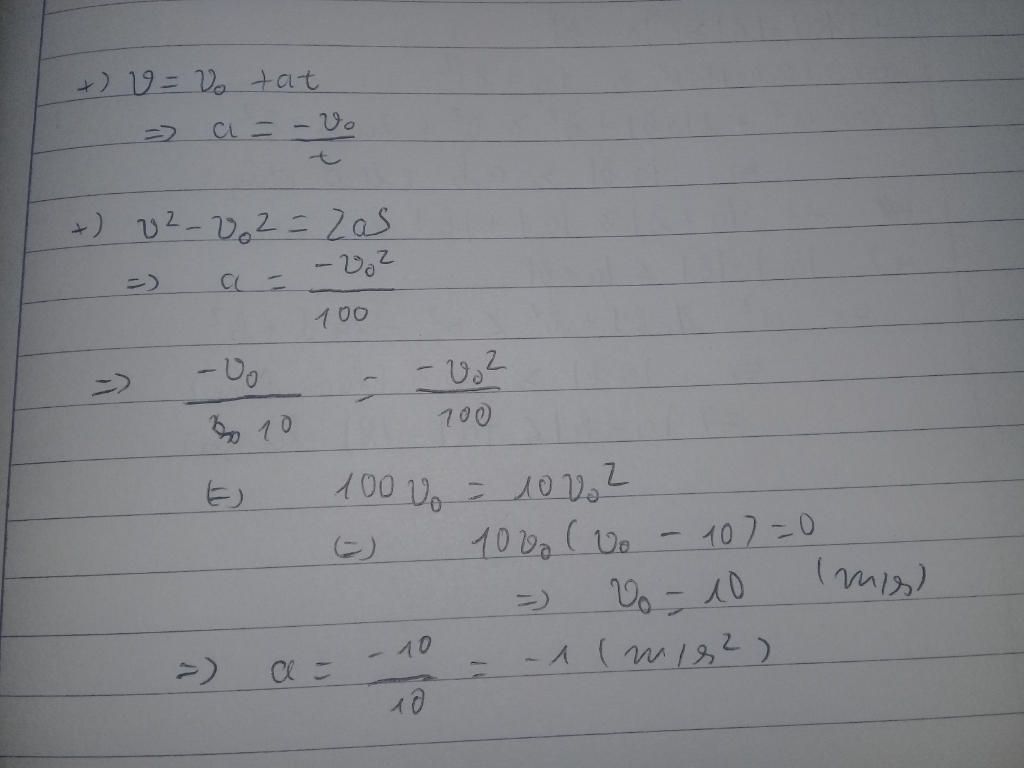 +) v = v₀ + at
=> a = -v₀/t
+) v² - v₀² = 2aS
=> a = -v₀²/100
=> -v₀/10 = -v₀²/100
(=) 100v₀ = 10v₀²
(=) 10v₀(v₀ - 10) = 0
=> v₀ = 10 (m/s)
=> a = -10/10 = -1 (m/s²)